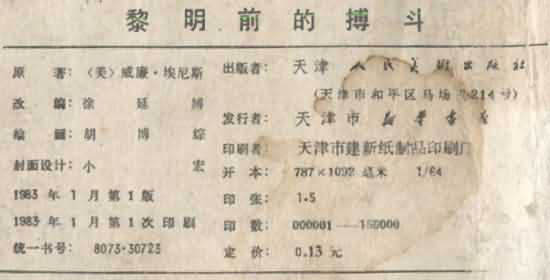 黎明前的搏斗
原著:〈美〉威廉·埃尼斯
改编:徐廷博
绘画:胡博综
封面设计:小宏
1983年1月第1版
1983年1月第1次印刷
统一书号:8073·30723
出版者:天津人民美术出版社
(天津市和平区马场 214号)
发行者:天津市新华书店
印刷者:天津市建新纸制品印刷厂
开本:787×1092毫米 1/64
印张:1.5
印数:000001—150000
定价:0.13元